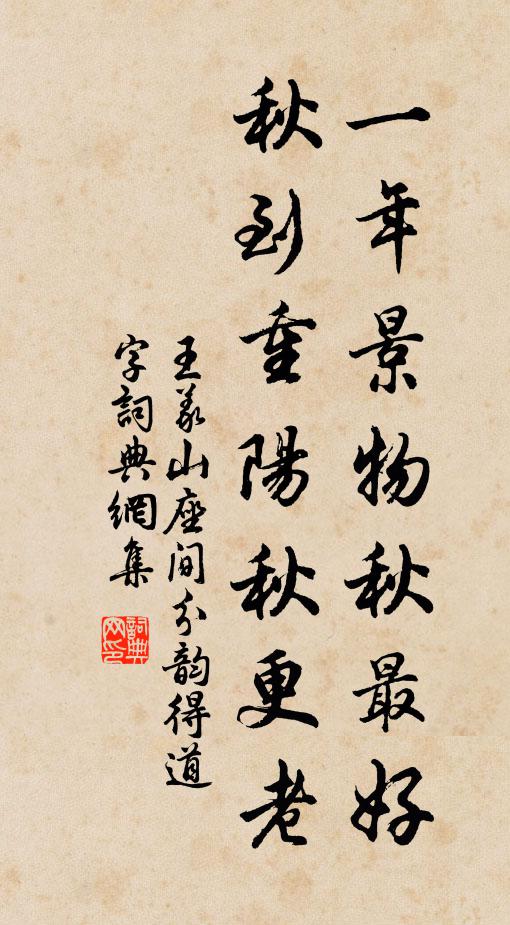 一年景物秋最好
秋到重陽秋更老
王義山座间分韵得道
字詞典網集
詞典网印